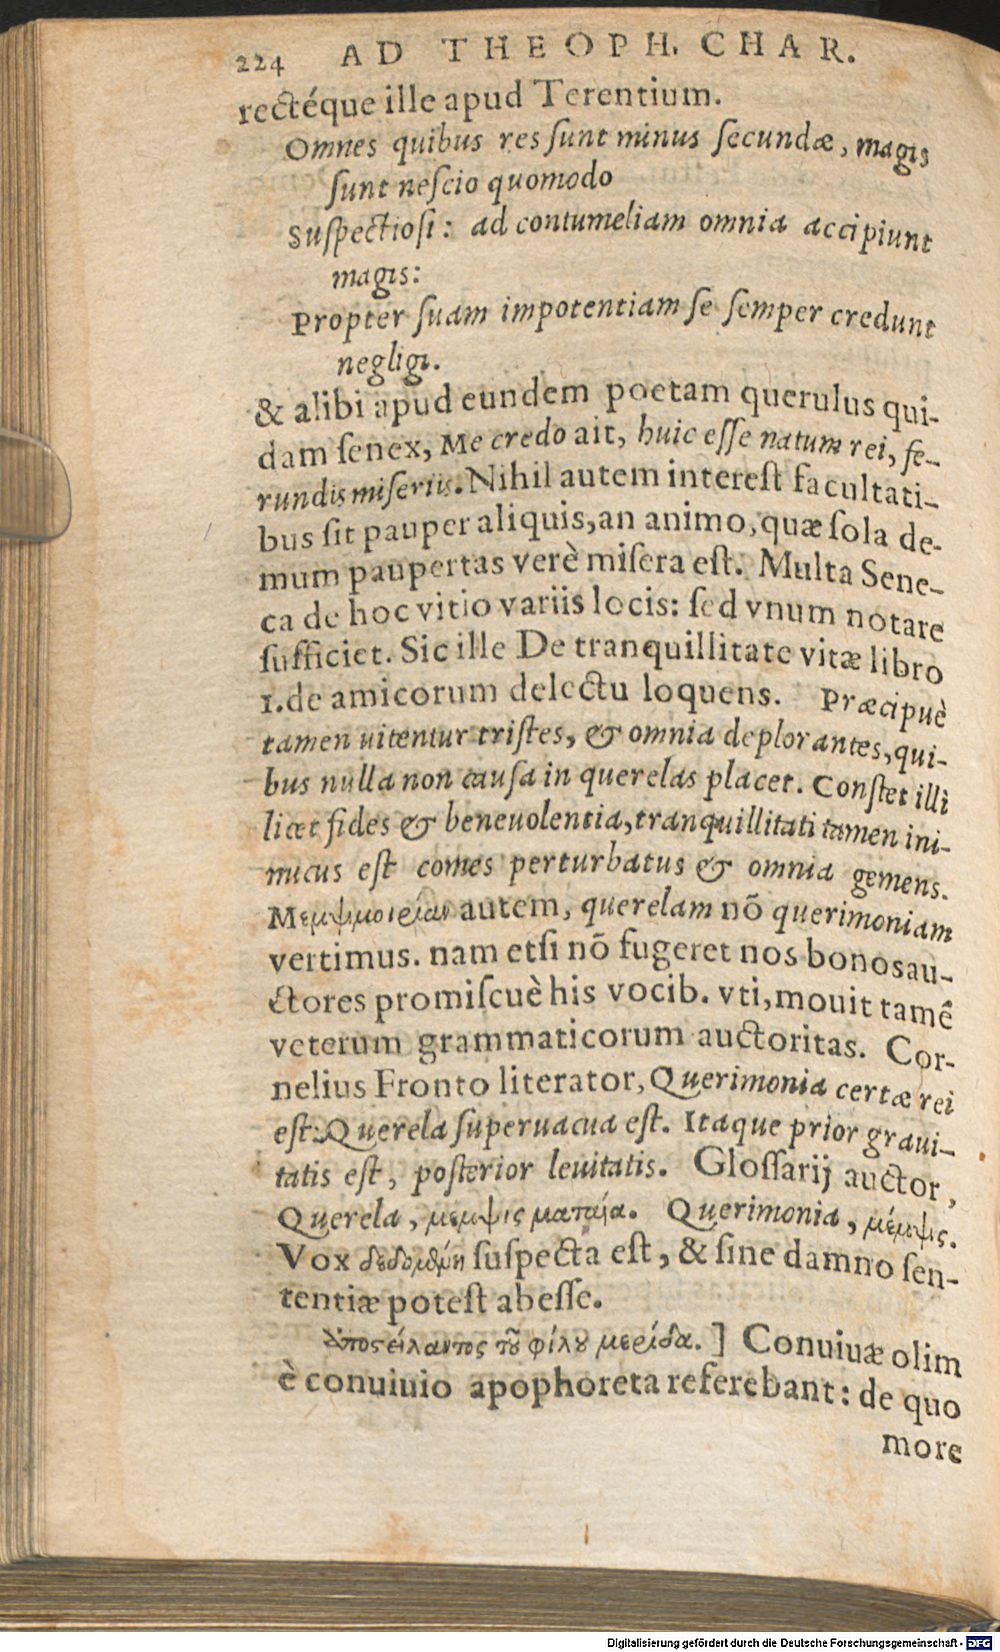 224 AD THEOPH. CHAR.
rectéque ille apud Terentium.
Omnes quibus res sunt minus secundæ, magis
sunt nescio quomodo
Suspectiosi: ad contumeliam omnia accipiunt
magis:
Propter suam impotentiam se semper credunt
negligi.
& alibi apud eundem poetam querulus qui-
dam senex, Me credo ait, huic esse natum rei, fe-
rundis miseriis. Nihil autem interest facultati-
bus sit pauper aliquis, an animo, quæ sola de-
mum paupertas verè misera est. Multa Sene-
ca de hoc vitio variis locis: sed vnum notare
sufficiet. Sic ille De tranquillitate vitæ libro
1. de amicorum delectu loquens. Præcipuè
tamen uitentur tristes, & omnia deplorantes, qui-
bus nulla non causa in querelas placet. Constet illi
licet fides & beneuolentia, tranquillitati tamen ini-
micus est comes perturbatus & omnia gemens.
Μεμψιμοιρίαν autem, querelam nō querimoniam
vertimus. nam etsi nō fugeret nos bonos au-
ctores promiscuè his vocib. vti, mouit tamē
veterum grammaticorum auctoritas. Cor-
nelius Fronto literator, Querimonia certæ rei
est: Querela superuacua est. Itaque prior graui-
tatis est, posterior leuitatis. Glossarij auctor,
Querela, μέμψις ματαία. Querimonia, μέμψις.
Vox δεδομένη suspecta est, & sine damno sen-
tentiæ potest abesse.
Ἀποστείλαντος τοῦ φίλου μερίδα.] Conuiuæ olim
è conuiuio apophoreta referebant: de quo
more
Digitalisierung gefördert durch die Deutsche Forschungsgemeinschaft - DFG